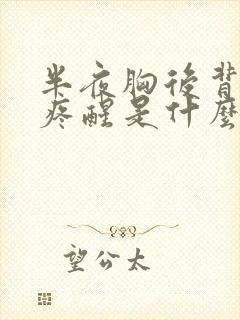 半夜胸後背
疼醒是什麼
望公太